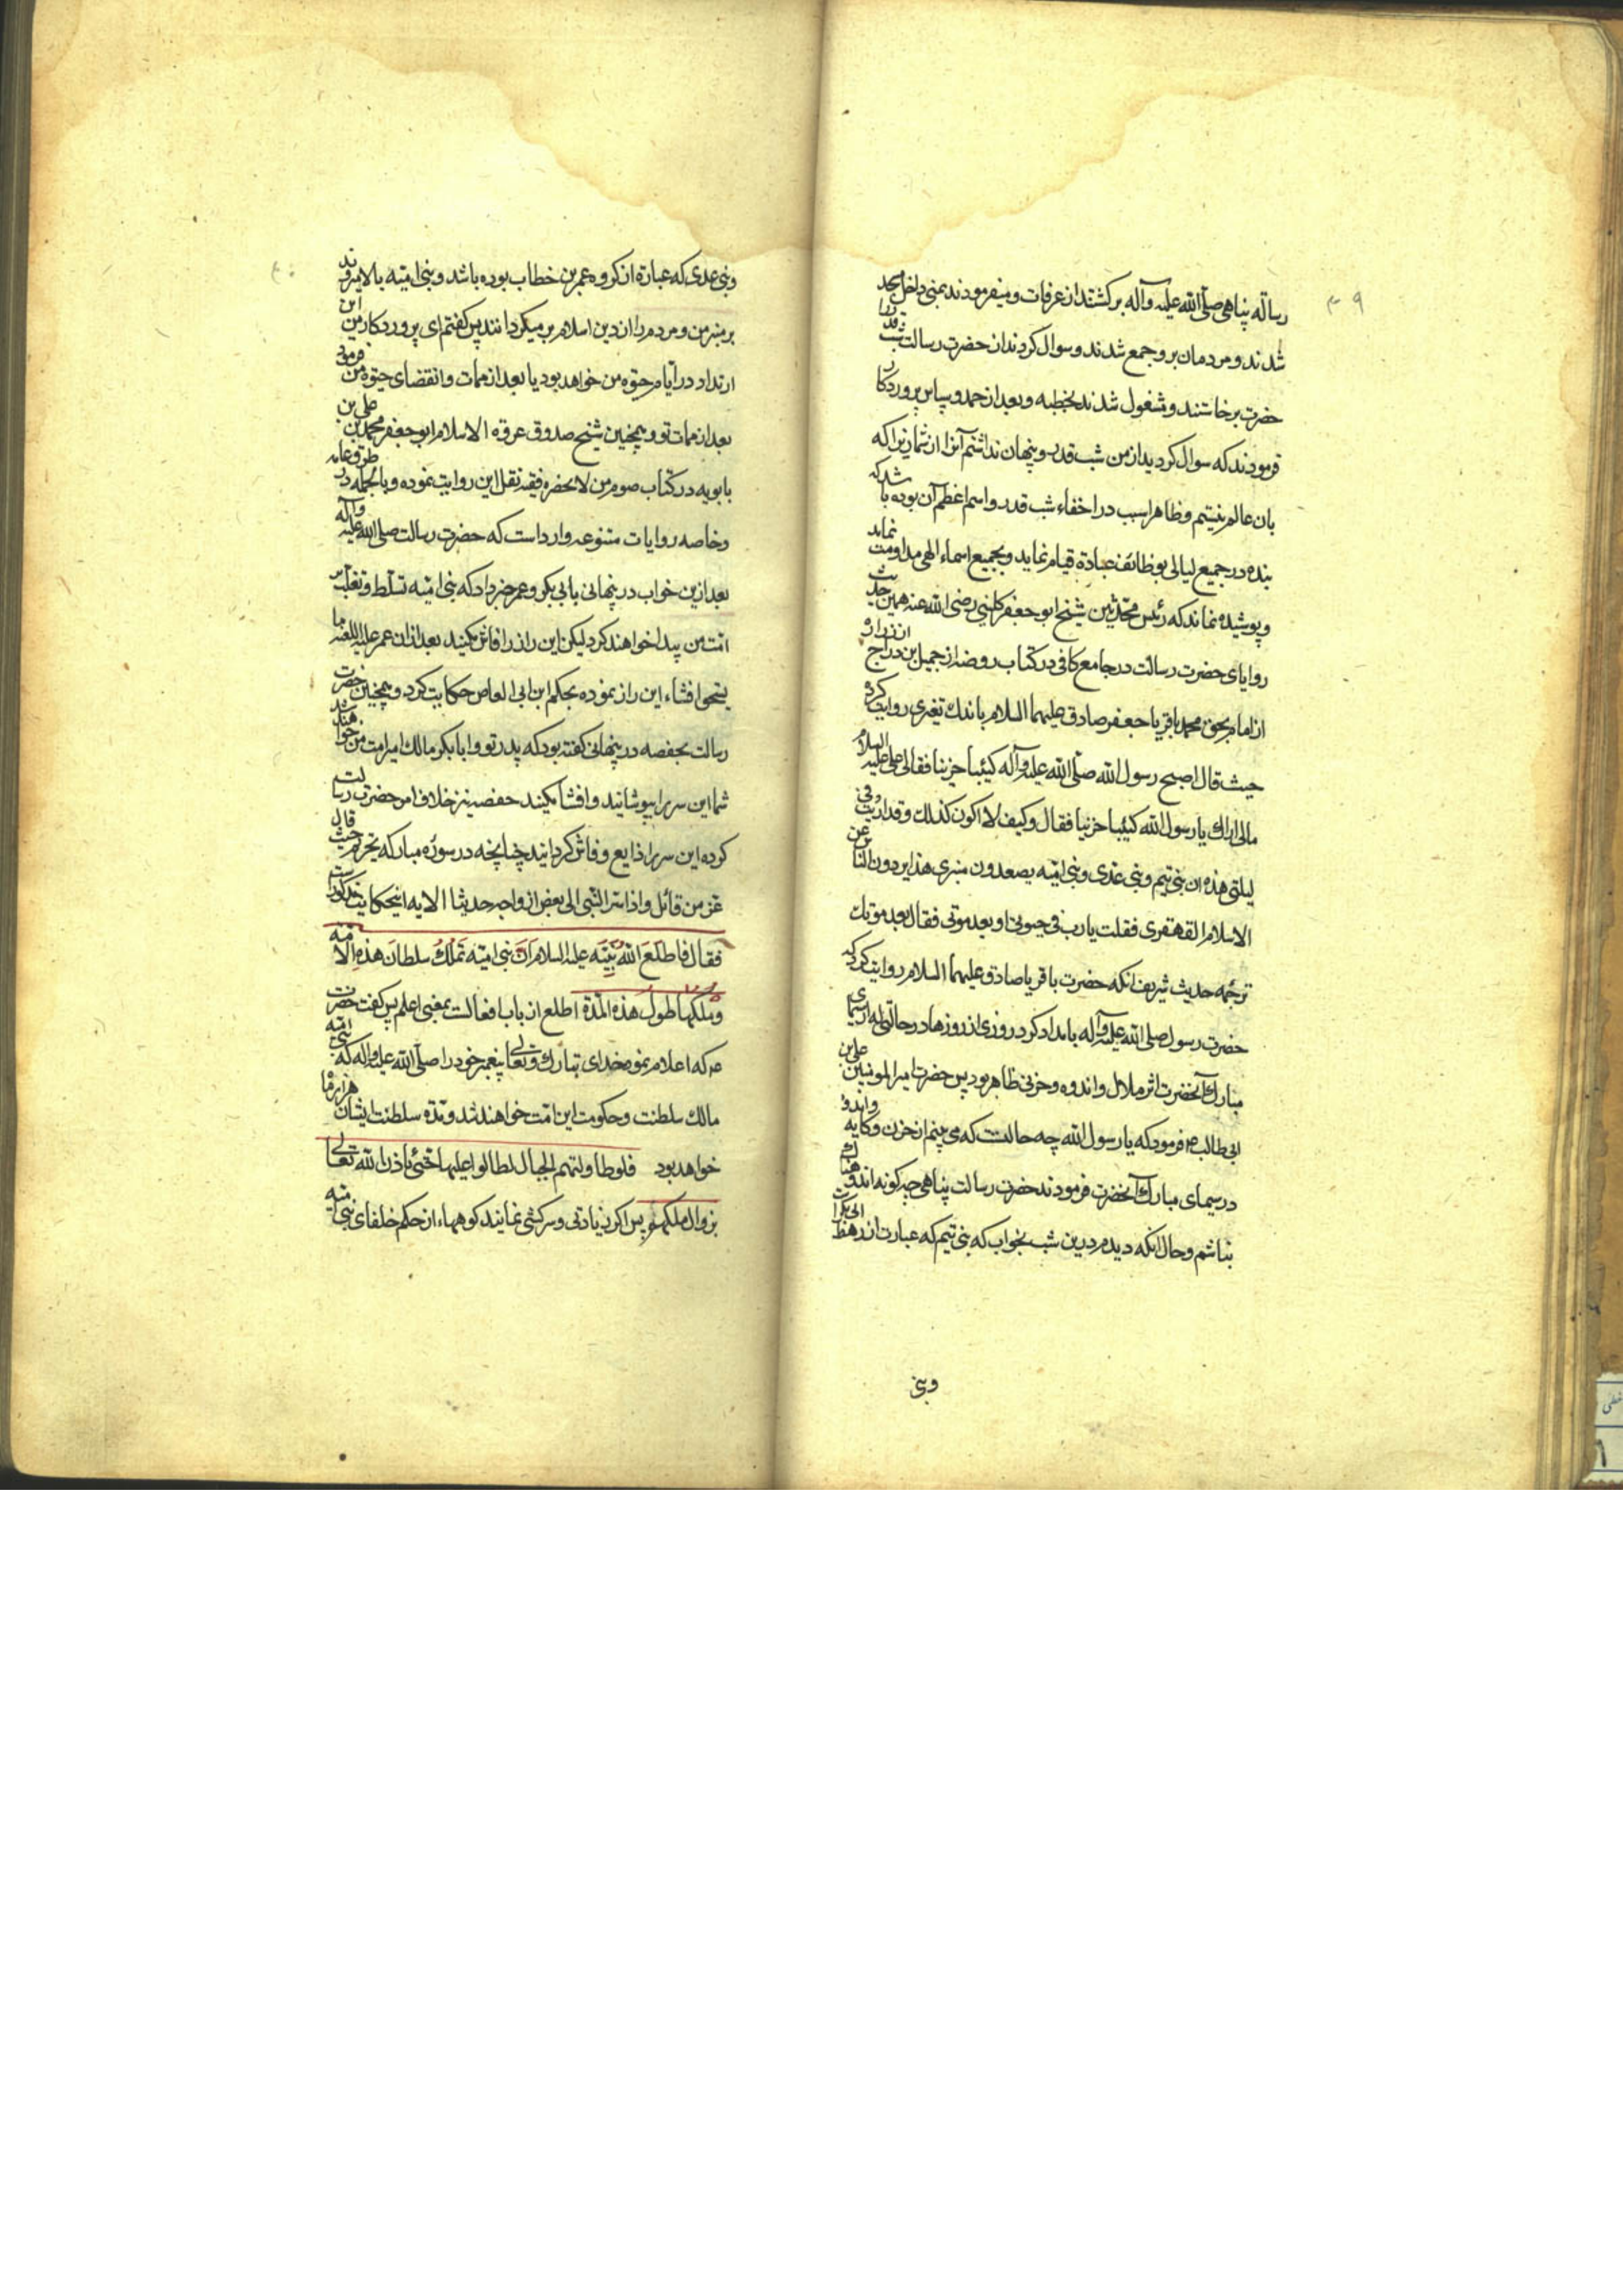 ۳۹
رسالة پناهی صلی الله علیه وآله برکشتند از عرفات ومیفرمودند بمنی داخل مسجد
شدند و مردمان برو جمع شدند وسوال کردند از حضرت رسالت شب قدر را
حضرت برخاستند ومشغول شدند بخطبه وبعد از حمد وسپاس پروردکار
فرمودند که سوال کردید از من شب قدر وپنهان نداشتم آنرا از شما زیرا که
بان عالم نیستم وظاهرا سبب در اخفاء شب قدر واسم اعظم آن بوده باشد که
بنده در جمیع لیالی بوظائف عبادة قیام نماید وبجمیع اسماء الهی مداومت نماید
وپوشیده نماند که رئیس محدثین شیخ ابو جعفر کلینی رضی الله عنه همین حدیث
روایای حضرت رسالت در جامع کافی در کتاب روضه از جمیل بن دراج از زراره
از امام بحق محمد باقر یا جعفر صادق علیهما السلام باندك تغیری روایت کرده
حیث قال اصبح رسول الله صلی الله علیه وآله کئیبا حزینا فقال علی علیه السلام
مالی اراك یا رسول الله کئیبا حزینا فقال وکیف لا اکون کذلك وقد اریت فی
لیلتی هذه ان بنی تیم وبنی عدی وبنی امیه یصعدون منبری هذا یردون الناس عن
الاسلام القهقری فقلت یا رب فی حیوتی او بعد موتی فقال بعد موتك
ترجمه حدیث شریف انکه حضرت باقر یا صادق علیهما السلام روایت کرد که
حضرت رسول صلی الله علیه وآله بامداد کرد روزی از روزها در حالتی که از سیمای
مبارك آنحضرت اثر ملال واندوه وحزنی ظاهر بود پس حضرت امیر المومنین علی بن
ابی طالب ع فرمود که یا رسول الله چه حالت است که می بینم از حزن وکابه واندوه
در سیمای مبارك آنحضرت فرمودند حضرت رسالت پناهی چه کونه اندوهناك
نباشم وحال انکه دیدم درین شب بخواب که بنی تیم که عبارت از رهط ابی بکر است
وبنی
وبنی عدی که عبارة از کروه عمر بن خطاب بوده باشد وبنی امیه بالا میروند
بر منبر من ومردم را از دین اسلام بر میکردانند پس کفتم ای پروردکار من این
ارتداد در ایام حیوه من خواهد بود یا بعد از ممات وانقضای حیوه من فرمود
بعد از ممات تو وهمچنین شیخ صدوق عروة الاسلام ابو جعفر محمد بن علی بن
بابویه در کتاب صوم من لا یحضره فقیه نقل این روایت نموده وبالجمله در طرق عامه
وخاصه روایات متنوعه وارد است که حضرت رسالت صلی الله علیه وآله
بعد ازین خواب در پنهانی بابی بکر وعمر خبر داد که بنی امیه تسلط وتغلب بر
امت من پیدا خواهند کرد لیکن این راز را فاش مکنید بعد از ان عمر علیه اللعنه ما
یستحق افشاء این راز نموده بحکم ابن ابی العاص حکایت کرد وهمچنین حضرت
رسالت بحفصه در پنهانی کفته بود که پدر تو وابابکر مالك امر امت من خواهند شد
شما این سر را بپوشانید وافشا مکنید حفصه نیز خلاف امر حضرت رسالت
کرده این سر را ذایع وفاش کردانید چنانچه در سوره مبارکه تحریم حیث قال
عز من قائل واذ اسر النبی الی بعض ازواجه حدیثا الایه اینحکایت مذکور است
فقال فاطلع الله نبیه علیه السلام ان بنی امیه تملك سلطان هذه الامه
وملکها طول هذه المدة اطلع از باب افعالست بمعنی اعلم پس کفت حضرت
ع که اعلام نمود خدای تبارك وتعالی پیغمبر خود را صلی الله علیه واله که بنی امیه
مالك سلطنت وحکومت این امت خواهند شد ومدة سلطنت ایشان هزار ماه
خواهد بود فلو طاولتهم الجبال لطالوا علیها حتی یاذن الله تعالی
بزوال ملکهم پس اکر زیادتی وسرکشی نمایند کوهها از حکم خلفای بنی امیه